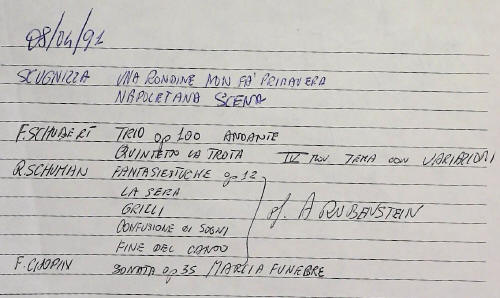 08/04/91
SCUGNIZZA UNA RONDINE NON FA' PRIMAVERA
NAPOLETANA SCENA
F. SCHUBERT TRIO op 100 ANDANTE
QUINTETTO LA TROTA IV MOV. TEMA CON VARIAZIONI
R. SCHUMAN FANTASIESTUCHE op 12
LA SERA
GRILLI
pf. A RUBENSTEIN
CONFUSIONE DI SOGNI
FINE DEL CANTO
F. CHOPIN SONATA op 35 MARCIA FUNEBRE